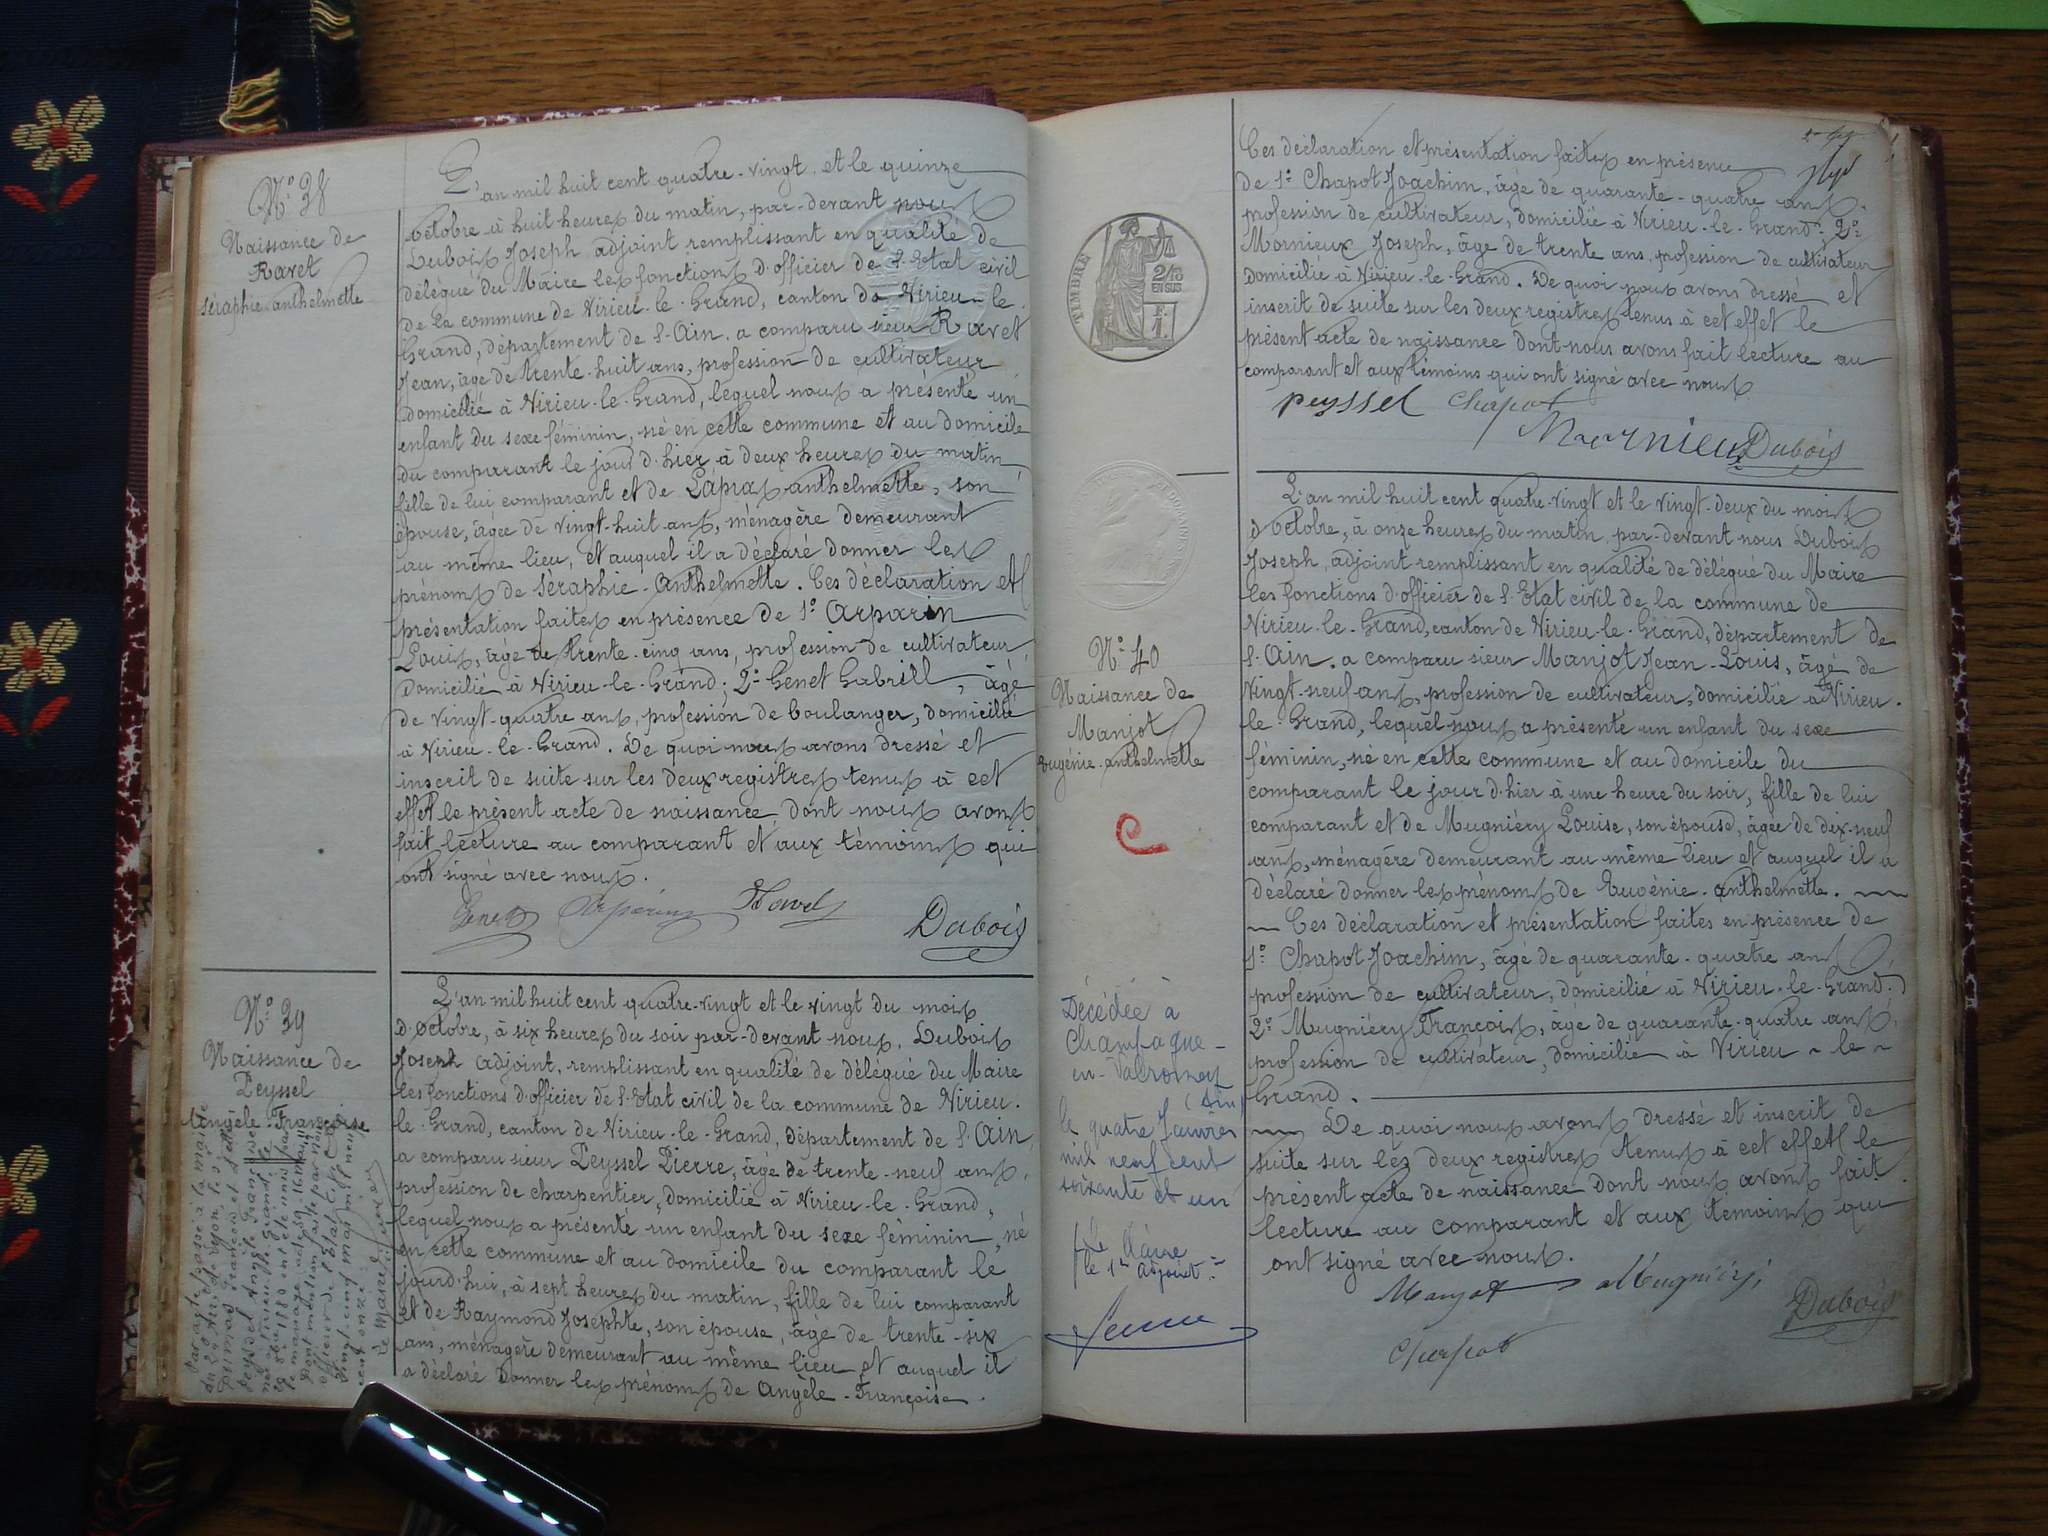 N° 38
Naissance de
Ravet
Séraphie anthelmette
L'an mil huit cent quatre-vingt et le quinze
octobre à huit heures du matin, par-devant nous
Dubois Joseph adjoint remplissant en qualité de
délégué du Maire les fonctions d'officier de l'Etat civil
de la commune de Virieu-le-Grand, canton de Virieu-le-
Grand, département de l'Ain. a comparu sieur Ravet
Jean, âgé de trente-huit ans, profession de cultivateur
domicilié à Virieu-le-Grand, lequel nous a présenté un
enfant du sexe féminin, né en cette commune et au domicile
du comparant le jour d'hier à deux heures du matin
fille de lui comparant et de Lapras anthelmette, son
épouse, âgée de vingt-huit ans, ménagère demeurant
au même lieu, et auquel il a déclaré donner les
prénoms de Séraphie Anthelmette. Ces déclaration et
présentation faites en présence de 1° Arparin
Louis, âgé de trente-cinq ans, profession de cultivateur
domicilié à Virieu-le-Grand; 2° Genet Gabrill, âgé
de vingt-quatre ans, profession de boulanger, domicilié
à Virieu-le-Grand. De quoi nous avons dressé et
inscrit de suite sur les deux registres tenus à cet
effet le présent acte de naissance, dont nous avons
fait lecture au comparant et aux témoins qui
ont signé avec nous.
Genet Arparin Ravet
Dubois
N° 39
Naissance de
Peyssel
Angèle-Françoise
L'an mil huit cent quatre-vingt et le vingt du mois
d'octobre, à six heures du soir par-devant nous, Dubois
Joseph adjoint, remplissant en qualité de délégué du Maire
les fonctions d'officier de l'Etat civil de la commune de Virieu-
le-Grand, canton de Virieu-le-Grand, département de l'Ain
a comparu sieur Peyssel Pierre, âgé de trente-neuf ans,
profession de charpentier, domicilié à Virieu-le-Grand,
lequel nous a présenté un enfant du sexe féminin, né
en cette commune et au domicile du comparant le
jourd'hui, à sept heures du matin, fille de lui comparant
et de Raymond Josephte, son épouse, âgée de trente-six
ans, ménagère demeurant au même lieu et auquel il
a déclaré donner les prénoms de Angèle-Françoise.
Par acte passé à la mairie
Le Maire
Ces déclaration et présentation faites en présence
de 1° Chapot Joachim, âgé de quarante-quatre ans,
profession de cultivateur, domicilié à Virieu-le-Grand; 2°
Mornieux Joseph, âgé de trente ans, profession de cultivateur
domicilié à Virieu-le-Grand. De quoi nous avons dressé et
inscrit de suite sur les deux registres tenus à cet effet le
présent acte de naissance dont nous avons fait lecture au
comparant et aux témoins qui ont signé avec nous
peyssel Chapot
Mornieux Dubois
TIMBRE
2/10
EN SUS
F.
1.
N° 40
Naissance de
Manjot
Eugénie-anthelmette
L'an mil huit cent quatre-vingt et le vingt-deux du mois
d'octobre, à onze heures du matin, par-devant nous Dubois
Joseph, adjoint remplissant en qualité de délégué du Maire
les fonctions d'officier de l'Etat civil de la commune de
Virieu-le-Grand, canton de Virieu-le-Grand, département de
l'Ain. a comparu sieur Manjot Jean-Louis, âgé de
vingt-neuf ans, profession de cultivateur, domicilié à Virieu-
le-Grand, lequel nous a présenté un enfant du sexe
féminin, né en cette commune et au domicile du
comparant le jour d'hier à une heure du soir, fille de lui
comparant et de Mugniéry Louise, son épouse, âgée de dix-neuf
ans, ménagère demeurant au même lieu et auquel il a
déclaré donner les prénoms de Eugénie-anthelmette.
Ces déclaration et présentation faites en présence de
1° Chapot Joachim, âgé de quarante-quatre ans,
profession de cultivateur, domicilié à Virieu-le-Grand;
2° Mugniéry François, âgé de quarante-quatre ans,
profession de cultivateur, domicilié à Virieu-le-
Grand.
De quoi nous avons dressé et inscrit de
suite sur les deux registres tenus à cet effet le
présent acte de naissance dont nous avons fait
lecture au comparant et aux témoins qui
ont signé avec nous.
Manjot Mugniéry
Dubois
Chapot
Décédée à
Champagne-
en-Valromey
(Ain)
le quatre Janvier
mil neuf cent
soixante et un
Le Maire
le 1er adjoint